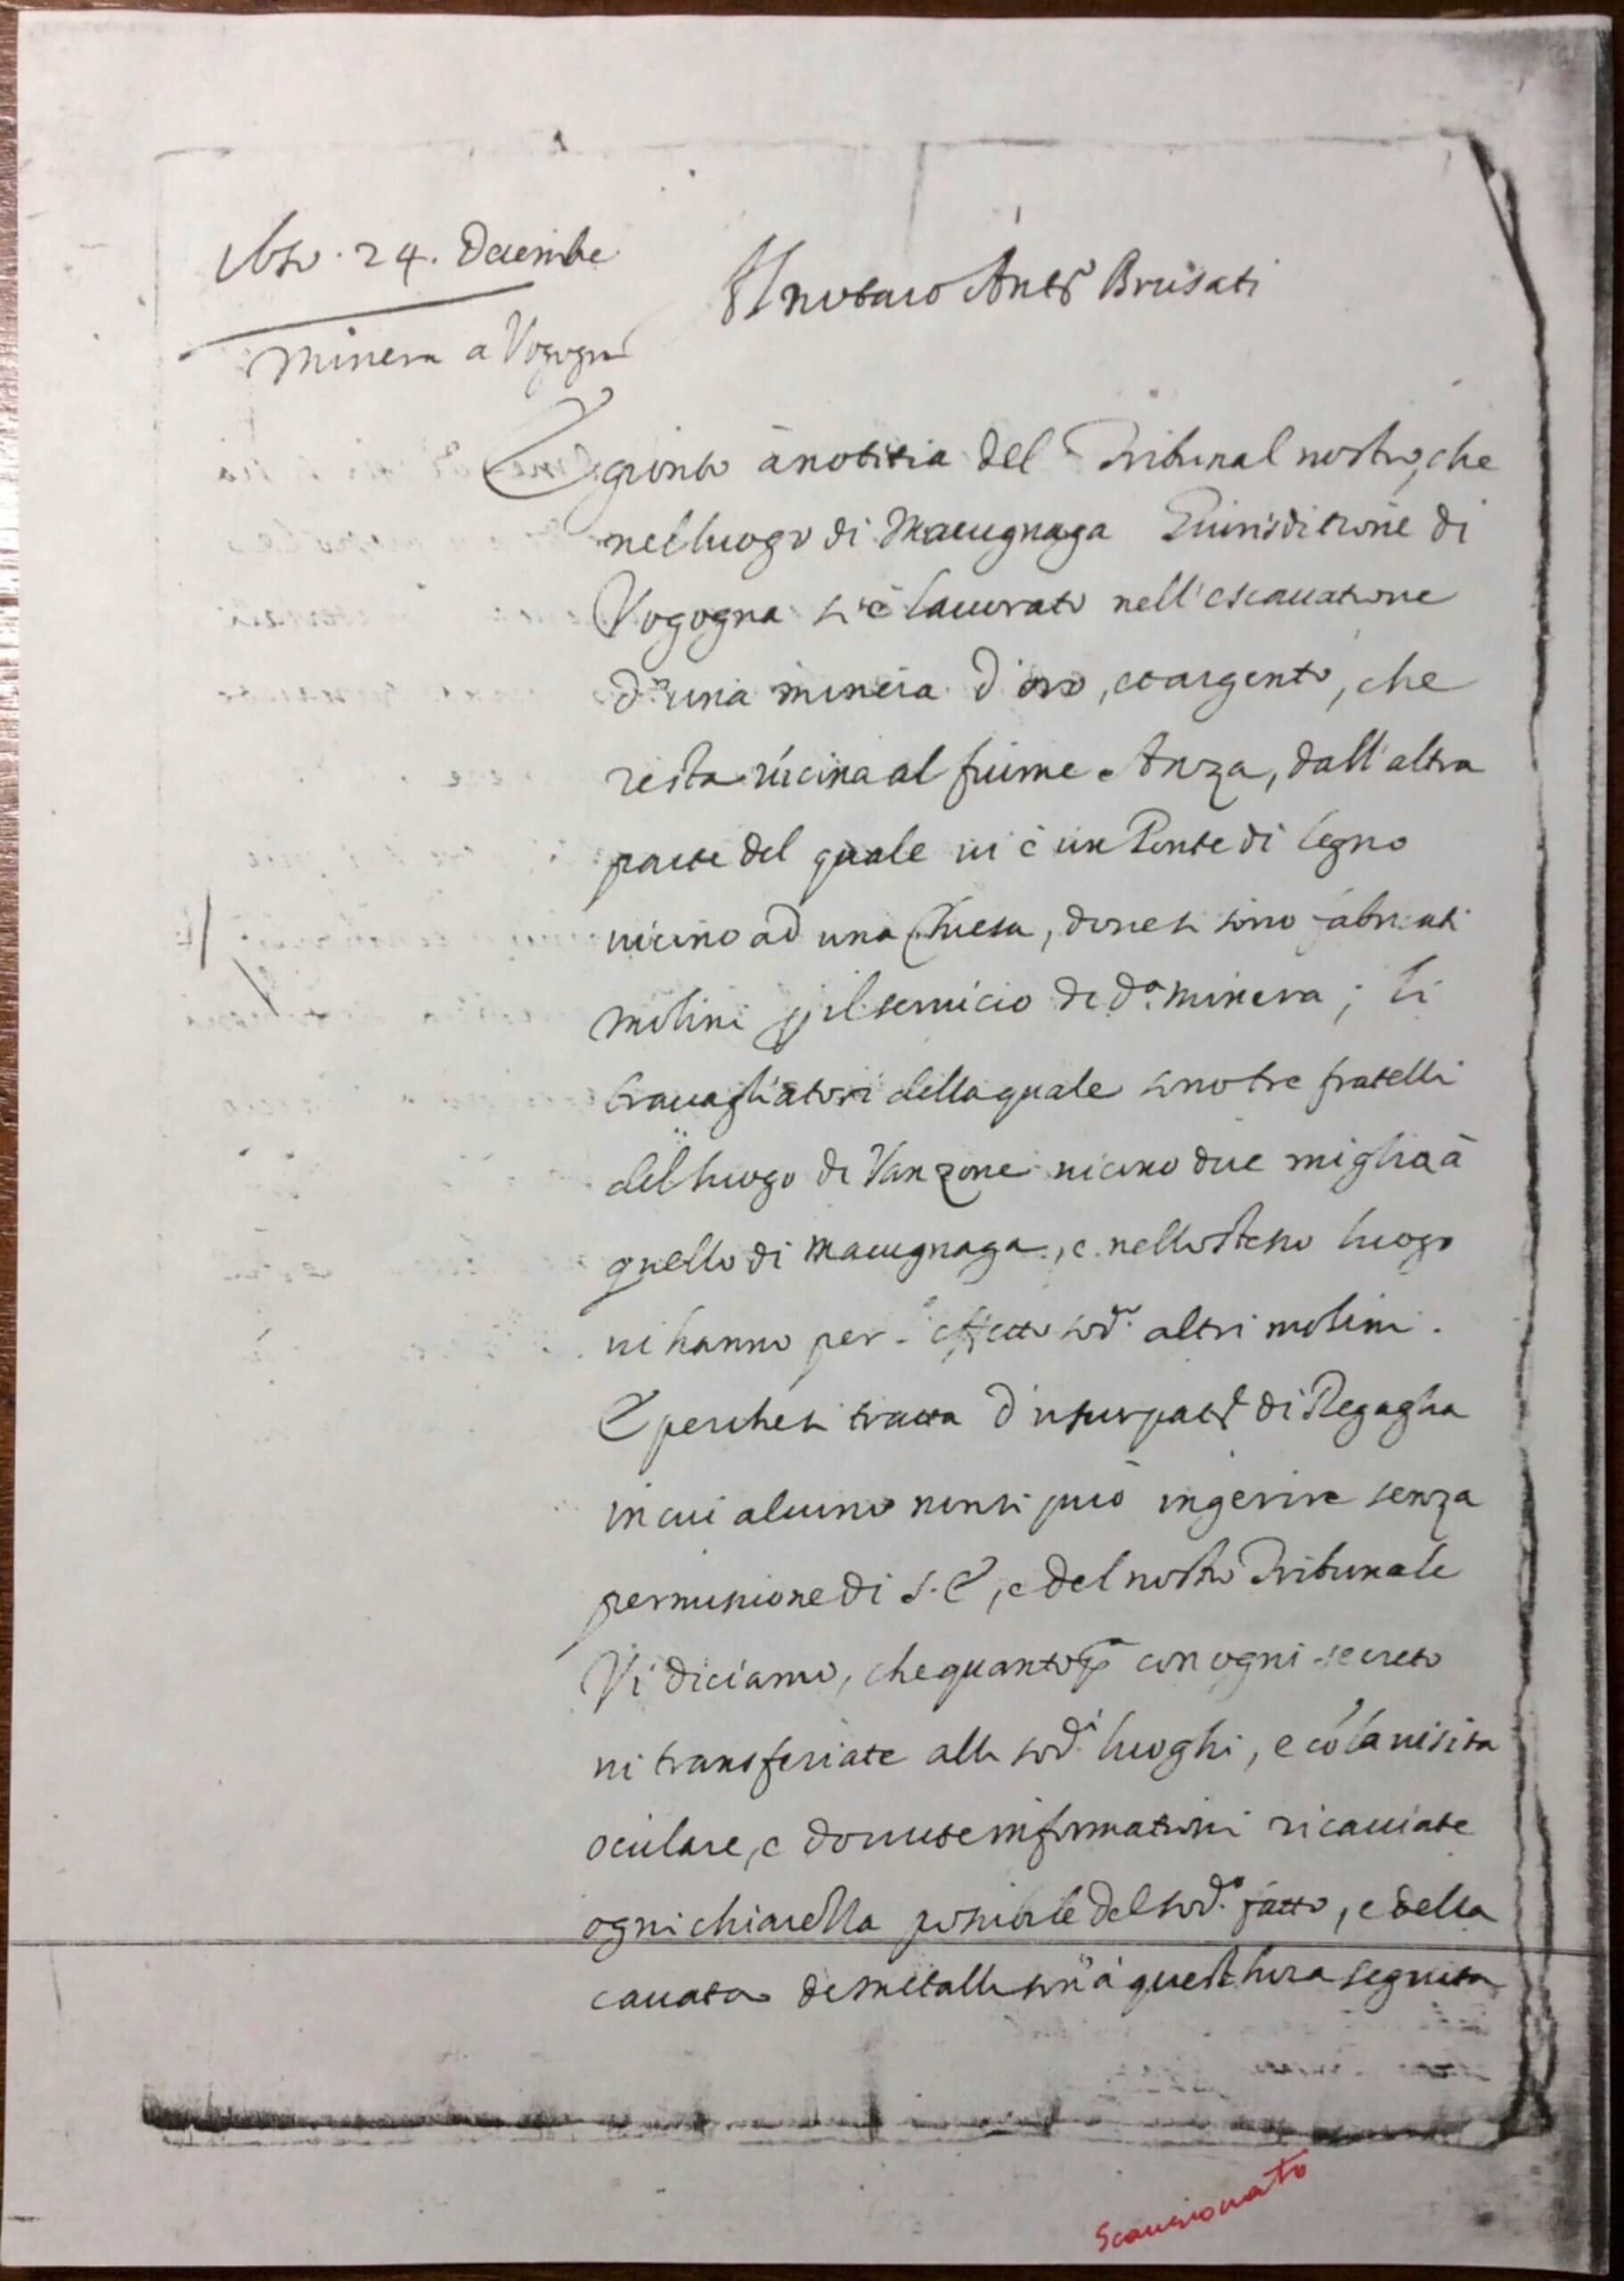 24. Decembre
Minera a Vogogna
Al notaro Ant.o Brusati
E gionto à notitia del Tribunal nostro, che
nel luogo di Macugnaga Giurisditione di
Vogogna si è lavorato nell'escavatione
d'una minera d'oro, et argento, che
resta vicina al fiume Anza, dall'altra
parte del quale vi è un Ponte di legno
vicino ad una Chiesa, dove si sono fabricati
molini p il servicio di d.a minera; li
travagliatori della quale sono tre fratelli
del luogo di Vanzone vicino due miglia à
quello di Macugnaga, e nello stesso luogo
vi hanno per l'effetto sod.o altri molini.
E perche si tratta d'usurpat.e di Regaglia
in cui alcuno non si può ingerire senza
permissione di S. E, e del nostro Tribunale
Vi diciamo, che quanto p.a con ogni secreto
vi transferiate alli sod.i luoghi, e cò la visita
oculare, e dovute informationi ricaviate
ogni chiarezza possibile del sod.o fatto, e della
cavata de metalli sin' à quest'hora seguita
Scansionato